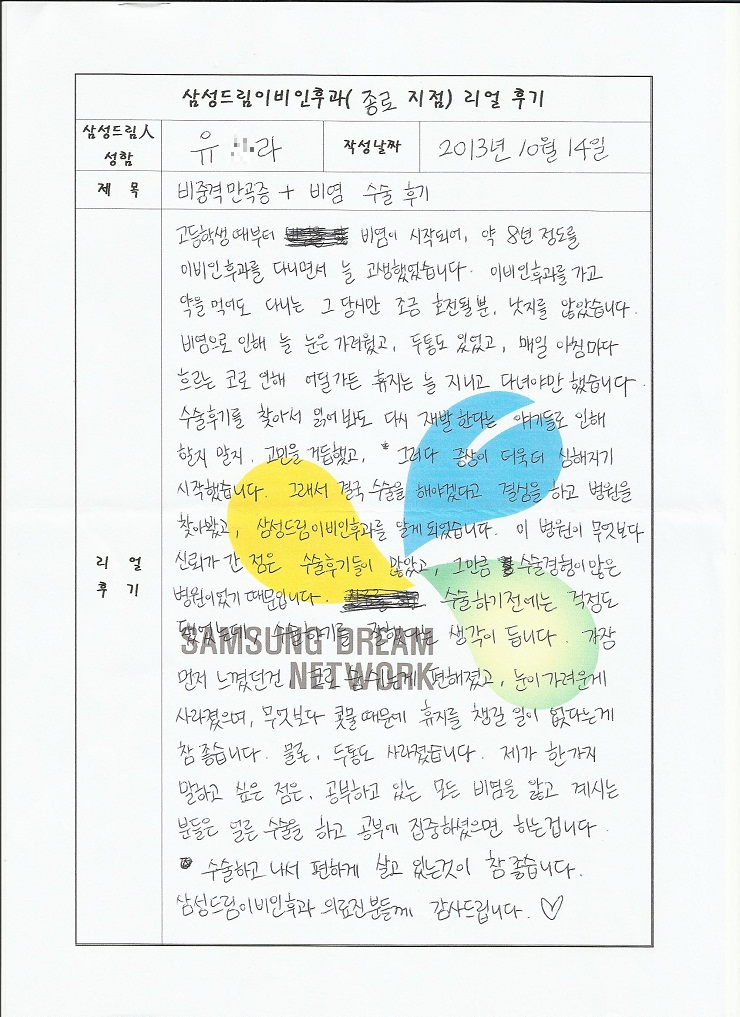 삼성드림이비인후과( 종로 지점) 리얼 후기
삼성드림人 성함
유 라
작성날짜
2013년 10월 14일
제 목
비중격만곡증 + 비염 수술 후기
리 얼 후 기
고등학생때부터 비염이 시작되어, 약 8년 정도를
이비인후과를 다니면서 늘 고생했었습니다. 이비인후과를 가고
약을 먹어도 다니는 그 당시만 조금 호전될 뿐, 낫지를 않았습니다.
비염으로 인해 늘 눈은 가려웠고, 두통도 있었고, 매일 아침마다
흐르는 코로 인해 어딜가든 휴지는 늘 지니고 다녀야만 했습니다.
수술후기를 찾아서 읽어봐도 다시 재발한다는 얘기들로 인해
할지 말지. 고민을 거듭했고, 그러다 증상이 더욱더 심해지기
시작했습니다. 그래서 결국 수술을 해야겠다고 결심을 하고 병원을
찾아봤고, 삼성드림이비인후과를 알게 되었습니다. 이 병원이 무엇보다
신뢰가 간 점은 수술후기들이 많았고, 그만큼 수술경험이 많은
병원이었기 때문입니다. 수술하기전에는 걱정도
됐었는데, 수술하기를 잘했다는 생각이 듭니다. 가장
SAMSUNG DREAM
NETWORK
먼저 느꼈던건, 코로 숨쉬는게 편해졌고, 눈이 가려운게
사라졌으며, 무엇보다 콧물때문에 휴지를 챙길 일이 없다는게
참 좋습니다. 물론, 두통도 사라졌습니다. 제가 한가지
말하고 싶은 점은, 공부하고 있는 모든 비염을 앓고 계시는
분들은 얼른 수술을 하고 공부에 집중하셨으면 하는겁니다.
수술하고 나서 편하게 살고 있는것이 참 좋습니다.
삼성드림이비인후과 의료진분들께 감사드립니다. ♡